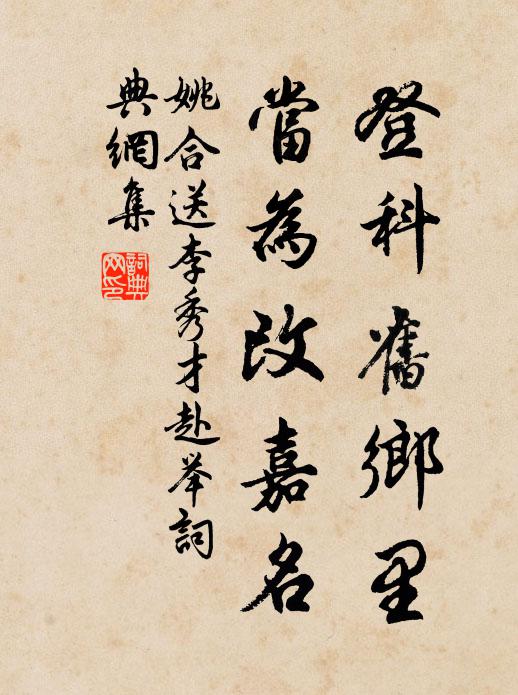 登科舊鄉里
當為改嘉名
姚合送李秀才赴举詞
典網集
詞典
网印